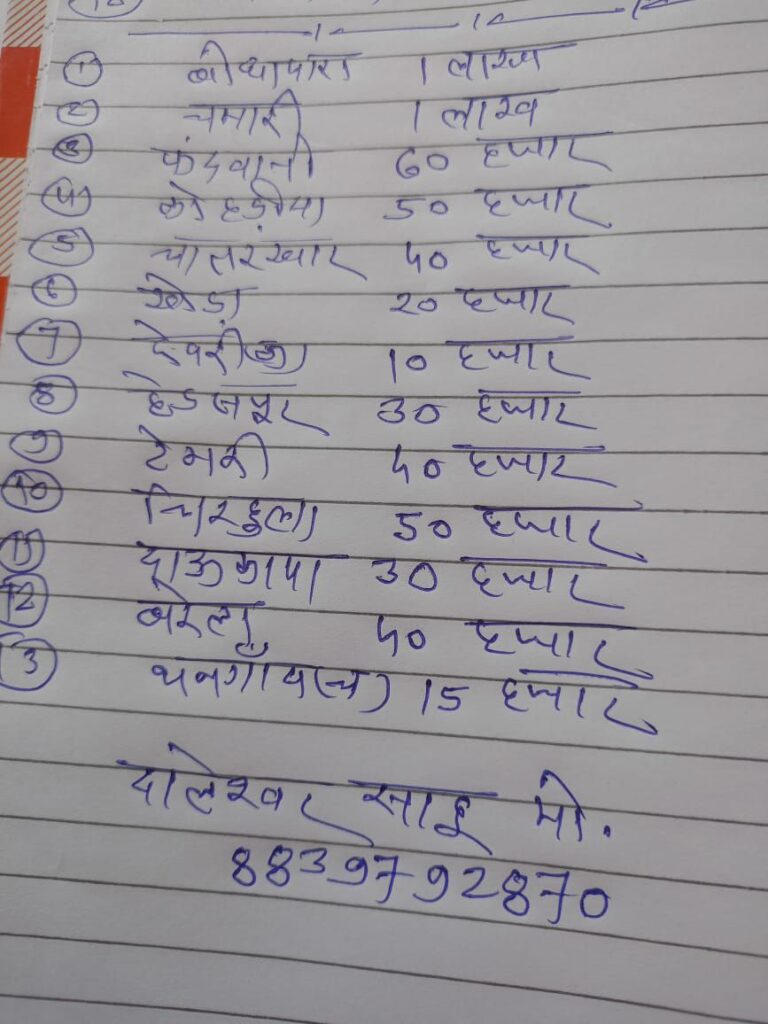 ① बोधापारा 1 लाख
② चमारी 1 लाख
③ फंदवानी 60 हजार
④ कोहड़ीया 50 हजार
⑤ चातरखार 40 हजार
⑥ खेड़ा 20 हजार
⑦ देवरी(ख) 10 हजार
⑧ हेडसपुर 30 हजार
⑨ टेमरी 40 हजार
⑩ चिरहुला 50 हजार
⑪ दाऊकापा 30 हजार
⑫ बरेला 40 हजार
⑬ धनगांव(च) 15 हजार
दालेश्वर साहू मो.
8839792870